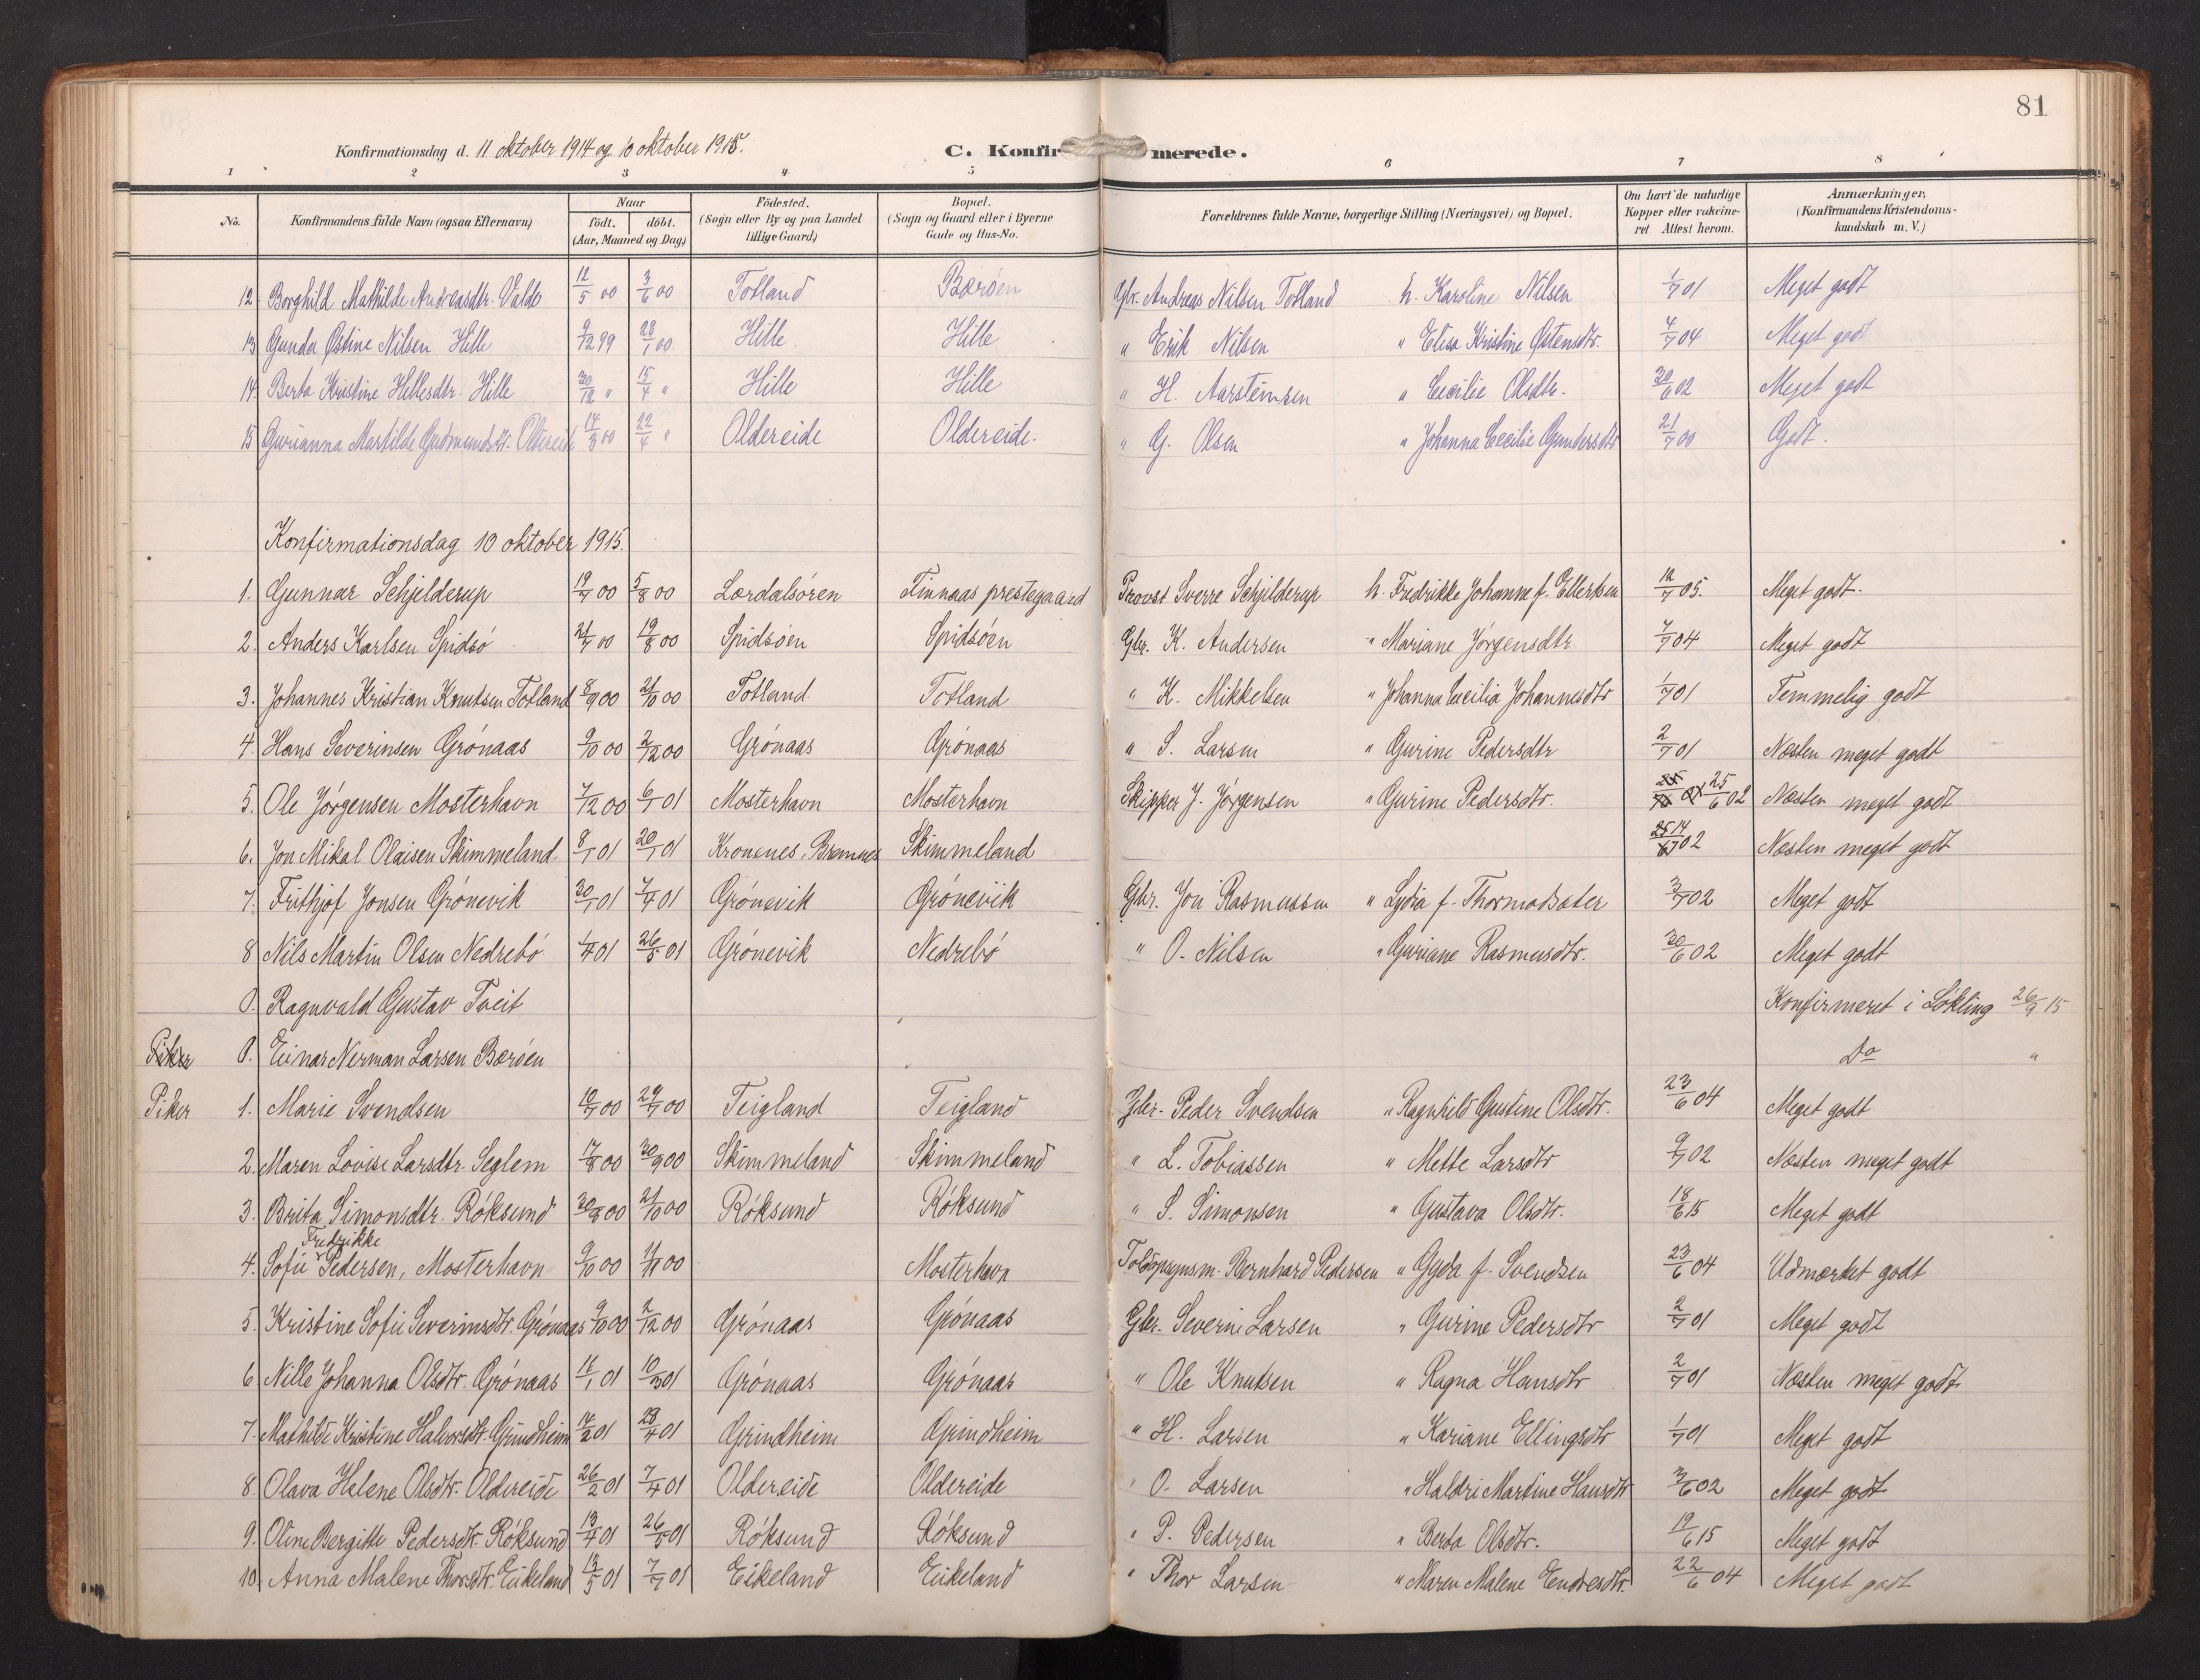 81
Konfirmationsdag d. 11 oktober 1914 og 10 oktober 1915. C. Konfirmerede.
1 2 3 4 5 6 7 8
No. Konfirmandens fulde Navn (ogsaa Efternavn) Naar født, døbt. (Aar, Maaned og Dag) Fødested. (Sogn eller By og paa Landet tillige Gaard) Bopæl. (Sogn og Gaard eller i Byerne Gade og Hus-No. Forældrenes fulde Navne, borgerlige Stilling (Næringsvei) og Bopæl. Om havt de naturlige Kopper eller vakcineret Attest herom. Anmærkninger, (Konfirmandens Kristendomskundskab m. V.)
12. Borghild Mathilde Andreasdtr. Valde 12/5 00 3/6 00 Totland Børøen Gbr. Andreas Nilsen Totland h. Karoline Nilsen 1/7 01 Meget godt
13 Gunda Østine Nilsen Hille 9/12 99 28/1 00 Hille Hille " Erik Nilsen " Elisa Kristine Østensdtr. 4/7 04 Meget godt
14. Berta Kristine Hellesdtr. Hille 30/12 " 15/4 " Hille Hille " H. Aarsteinsen " Cecilie Olsdtr. 30/6 02 Meget godt
15 Gurianna Martilde Gudmundsdtr. Oldereide 14/3 00 22/4 " Oldereide Oldereide. " G. Olsen " Johanna Cecilie Gundersdtr 21/7 00 Godt.
Konfirmationsdag 10 oktober 1915.
1. Gunnar Schjelderup 19/7 00 5/8 00 Lærdalsøren Finnaas prestegaard Provst Sverre Schjelderup h. Fredrikke Johanne f. Ellertsen 12/7 05. Meget godt.
2. Anders Karlsen Spidsø 21/7 00 19/8 00 Spidsøen Spidsøen Gbr. K. Andersen " Mariane Jørgensdtr 4/7 04 Meget godt
3. Johannes Kristian Knutsen Totland 8/9 00 21/10 00 Totland Totland " K. Mikkelsen " Johanna Cecilia Johannesdtr 1/7 01 Temmelig godt
4. Hans Severinsen Grønaas 9/10 00 2/12 00 Grønaas Grønaas " S. Larsen " Gurine Pedersdtr 2/7 01 Næsten meget godt
5. Ole Jørgensen Mosterhavn 7/12 00 6/1 01 Mosterhavn Mosterhavn Skipper J. Jørgensen " Gurine Pedersdtr. 25/6 02 Næsten meget godt
6. Jon Mikal Olaisen Skimmeland 8/1 01 20/1 01 Kronenes, Bremnes Skimmeland 14/7 02 Næsten meget godt
7. Frithjof Jonsen Grønevik 30/1 01 7/4 01 Grønevik Grønevik Gbr. Jon Rasmussen " Lydia f. Thormodsæter 3/7 02 Meget godt
8 Nils Martin Olsen Nedrebø 1/4 01 26/5 01 Grønevik Nedrebø " O. Nilsen " Guriane Rasmusdtr. 30/6 02 Meget godt
0. Ragnvald Gustav Tveit Konfirmeret i Løkling 26/9 15
Piker 0. Einar Nerman Larsen Børøen Do "
Piker 1. Marie Svendsen 10/7 00 29/7 00 Teigland Teigland Gbr. Peder Svendsen " Ragnhild Gustine Olsdtr. 23/6 04 Meget godt
2. Maren Lovise Larsdtr. Seglem 17/8 00 30/9 00 Skimmeland Skimmeland " L. Tobiassen " Mette Larsdtr 9/7 02 Næsten meget godt
3. Brita Simonsdtr. Røksund 30/8 00 21/10 00 Røksund Røksund " S. Simonsen " Gustava Olsdtr. 18/6 15 Meget godt
Fredrikke
4. Sofie Pedersen, Mosterhavn 9/10 00 11/11 00 Mosterhavn Toldopsynsm. Bernhard Pedersen " Gyda f. Svendsen 23/6 04 Udmerket godt
5. Kristine Sofie Severinsdtr. Grønaas 9/10 00 2/12 00 Grønaas Grønaas Gbr. Severin Larsen " Gurine Pedersdtr 2/7 01 Meget godt
6. Nille Johanna Olsdtr. Grønaas 11/1 01 10/3 01 Grønaas Grønaas " Ole Knutsen " Ragna Hansdtr 2/7 01 Næsten meget godt
7. Mathilde Kristine Halvorsdtr. Grindheim 14/2 01 28/4 01 Grindheim Grindheim " H. Larsen " Kariane Ellingsdtr 1/7 01 Meget godt
8. Olava Helene Olsdtr. Oldereide 26/2 01 7/4 01 Oldereide Oldereide " O. Larsen " Haldri Martine Hansdtr 3/6 02 Meget godt
9. Oline Bergitte Pedersdtr. Røksund 13/4 01 26/5 01 Røksund Røksund " P. Pedersen " Berta Olsdtr. 19/6 15 Meget godt
10. Anna Malene Thorsdtr. Eikeland 13/5 01 7/7 01 Eikeland Eikeland " Thor Larsen " Maren Malene Endresdtr. 22/6 04 Meget godt